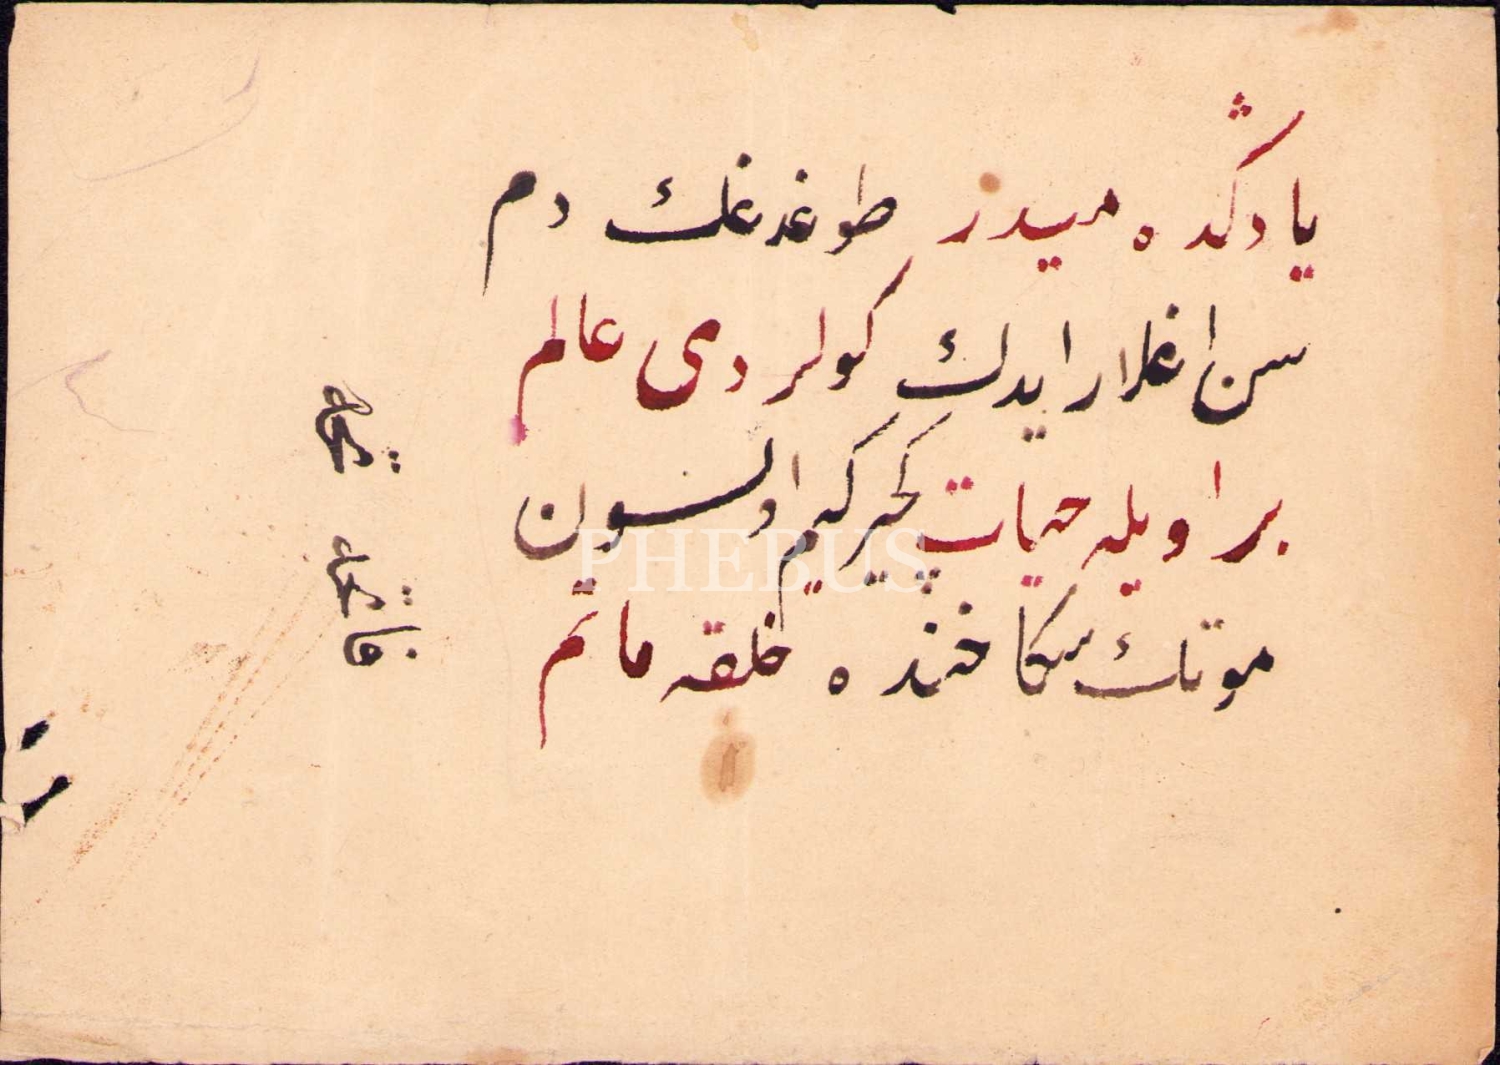 یادڭده میدر طوغدغڭ دم
سن اغلار ایدڭ کولردی عالم
بر اویله حیات کچیر کیم اولسون
موتڭ سڭا خنده خلقه ماتم
PHEBUS